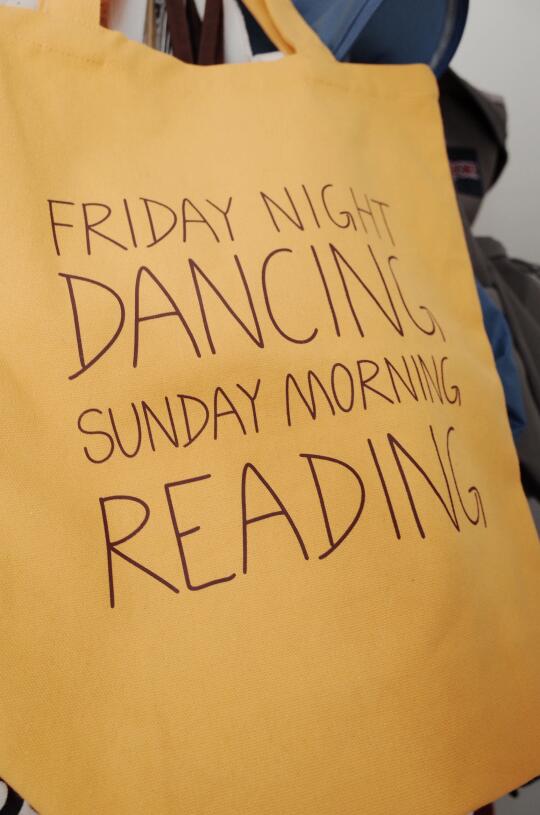 FRIDAY NIGHT
DANCING
SUNDAY MORNING
READING